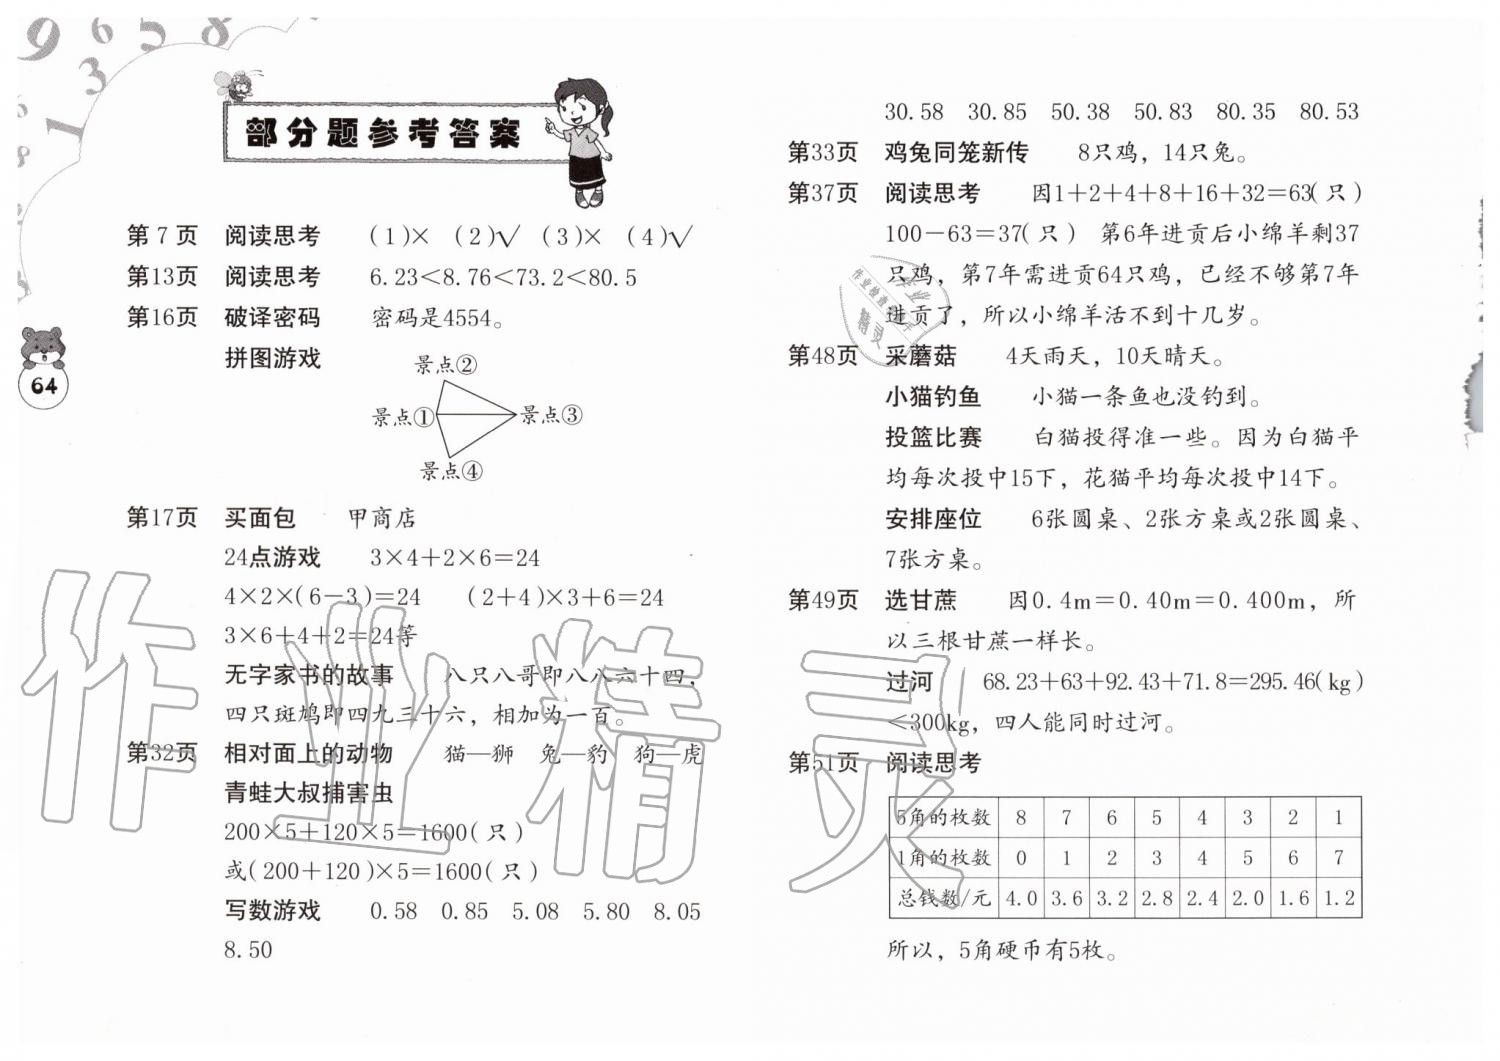 9 6 5 8
3
1
部分题参考答案
第7页 阅读思考 (1)× (2)√ (3)× (4)√
第13页 阅读思考 6.23<8.76<73.2<80.5
第16页 破译密码 密码是4554。
拼图游戏
景点②
景点① 景点③
景点④
64
第17页 买面包 甲商店
24点游戏 3×4+2×6=24
4×2×(6-3)=24 (2+4)×3+6=24
3×6+4+2=24等
无字家书的故事 八只八哥即八八六十四,
四只斑鸠即四九三十六，相加为一百。
第32页 相对面上的动物 猫—狮 兔—豹 狗—虎
青蛙大叔捕害虫
200×5+120×5=1600(只)
或(200+120)×5=1600(只)
写数游戏 0.58 0.85 5.08 5.80 8.05
8.50
30.58 30.85 50.38 50.83 80.35 80.53
第33页 鸡兔同笼新传 8只鸡，14只兔。
第37页 阅读思考 因1+2+4+8+16+32=63(只)
100-63=37(只) 第6年进贡后小绵羊剩37
只鸡，第7年需进贡64只鸡，已经不够第7年
进贡了，所以小绵羊活不到十几岁。
第48页 采蘑菇 4天雨天，10天晴天。
小猫钓鱼 小猫一条鱼也没钓到。
投篮比赛 白猫投得准一些。因为白猫平
均每次投中15下，花猫平均每次投中14下。
安排座位 6张圆桌、2张方桌或2张圆桌、
7张方桌。
第49页 选甘蔗 因0.4m=0.40m=0.400m，所
以三根甘蔗一样长。
过河 68.23+63+92.43+71.8=295.46(kg)
<300kg，四人能同时过河。
第51页 阅读思考
5角的枚数 8 7 6 5 4 3 2 1
1角的枚数 0 1 2 3 4 5 6 7
总钱数/元 4.0 3.6 3.2 2.8 2.4 2.0 1.6 1.2
所以，5角硬币有5枚。
作业精灵